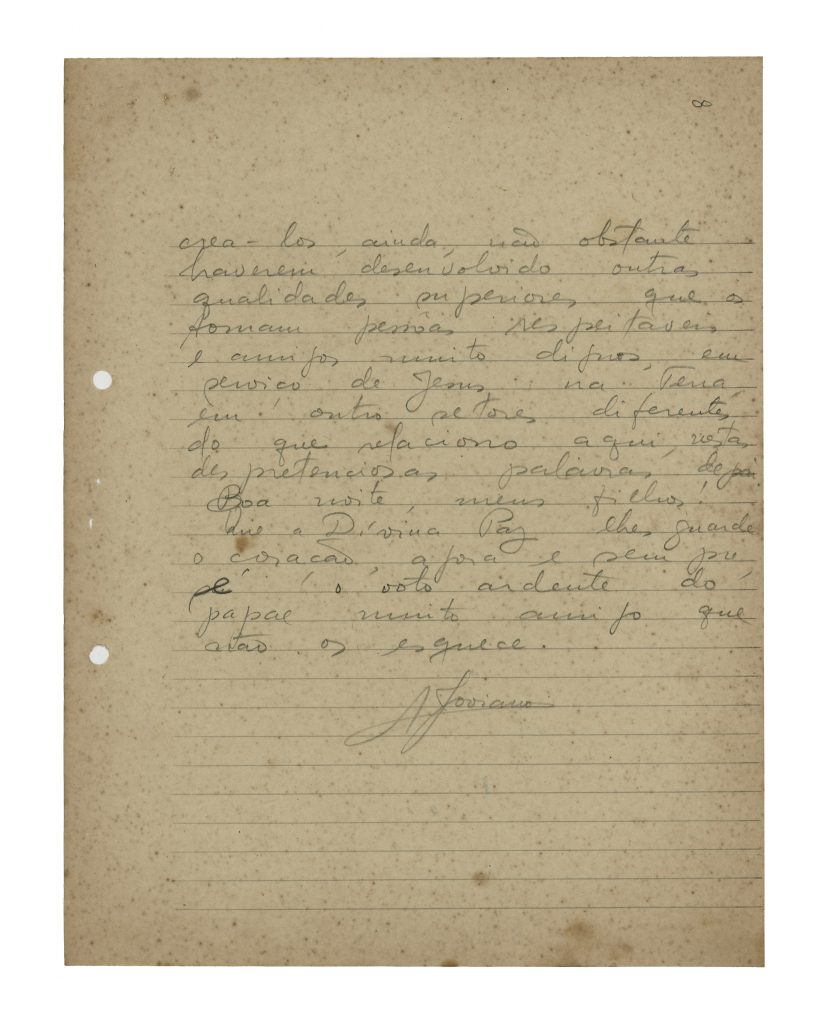 8
crea-los, ainda, não obstante
haverem desenvolvido outras
qualidades superiores que os
tornam pessôas respeitaveis
e amigos muito dignos, em
serviço de Jesus na Terra,
em outro setores diferentes
do que relaciono aqui, nestas
despretenciosas palavras de pai
Boa noite, meus filhos!
Que a Divina Paz lhes guarde
o coração, agora e sempre,
é o voto ardente do
papae muito amigo que
não os esquece.
A Joviano